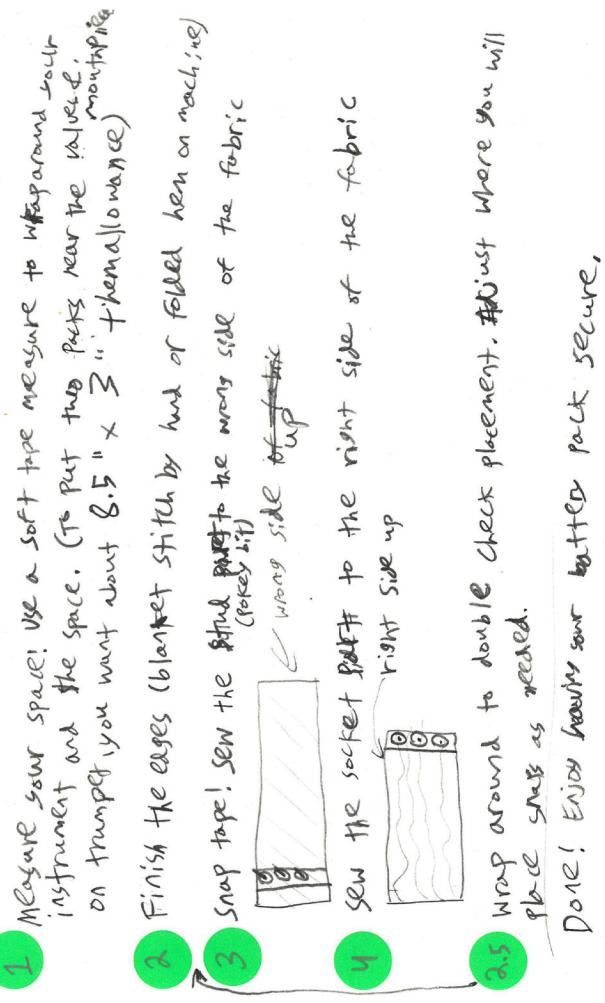 1
Measure your space! Use a soft tape measure to wrap around your
instrument and the space. (To put two packs near the valves &
mouthpiece
on trumpet, you want about 8.5" x 3"
+ hem allowance)
2
Finish the edges (blanket stitch by hand or folded hem on machine)
3
Snap tape! Sew the stud to the wrong side of the fabric
(pokey bit)
wrong side of fabric
up
4
Sew the socket to the right side of the fabric
right side up
2.5
Wrap around to double check placement. Adjust where you will
place snaps as needed.
Done! Enjoy having your battery pack secure.